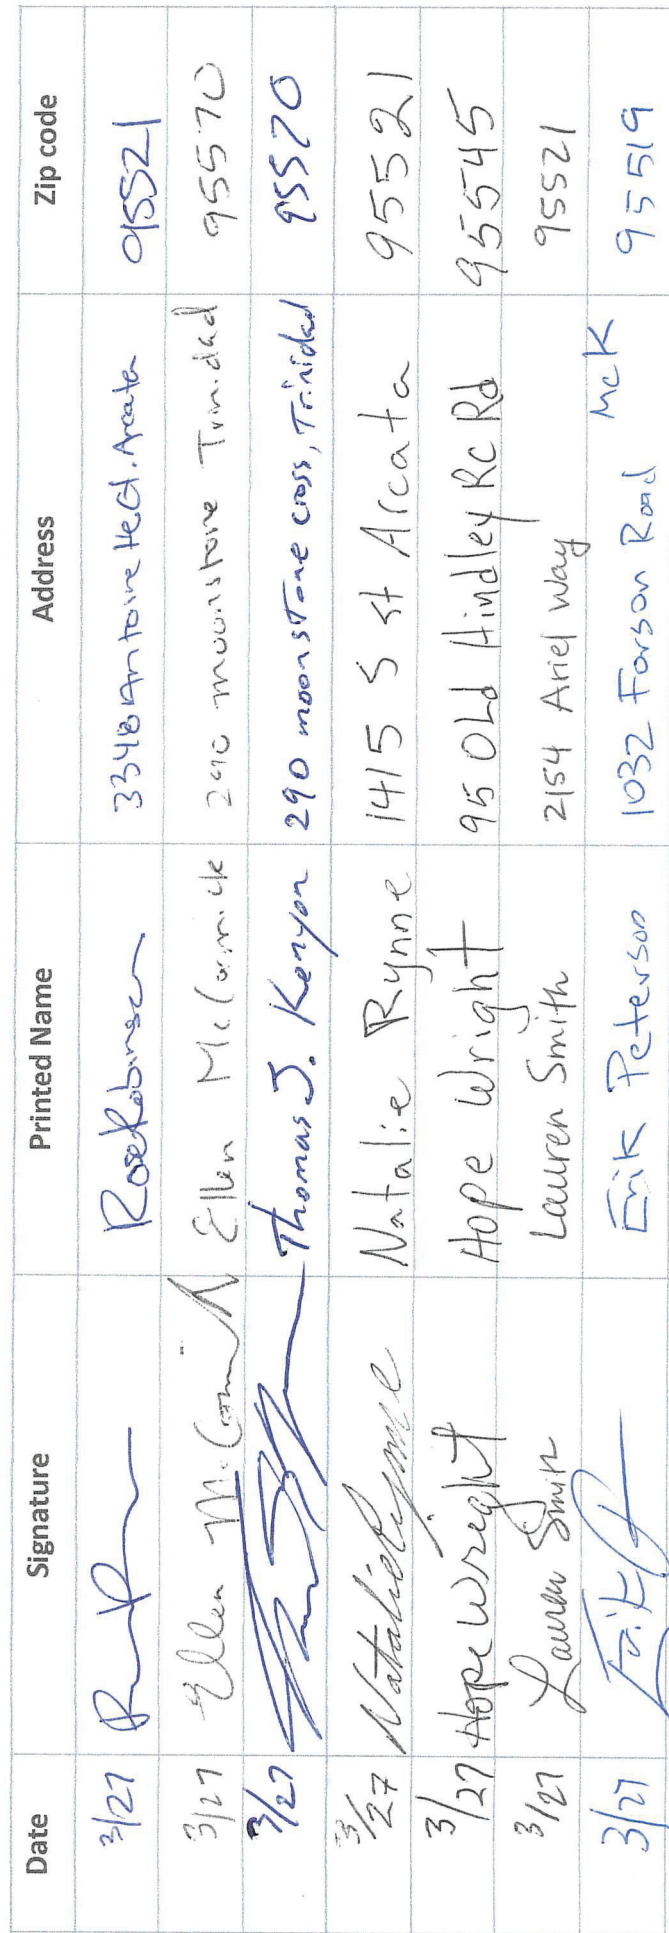 Date Signature Printed Name Address Zip code
3/27 Rose Robinson 3348 Antoine Arcata 95521
3/27 Ellen McCormick Ellen McCormick 290 moonstone Trinidad 95570
3/27 Thomas J. Kenyon 290 moonstone cross, Trinidad 95570
3/27 Natalie Rynne Natalie Rynne 1415 S st Arcata 95521
3/27 Hope Wright Hope Wright 95 Old Hindley Rc Rd 95545
3/27 Lauren Smith Lauren Smith 2154 Ariel Way 95521
3/27 Erik P Erik Peterson 1032 Farson Road McK 95519